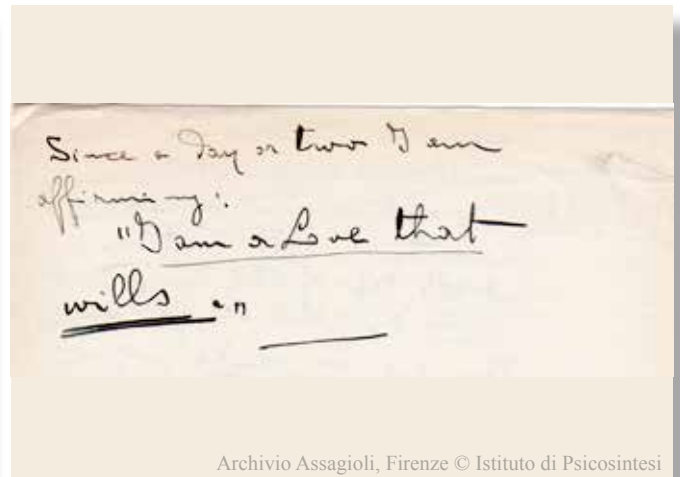 Since a day or two I am
affirming:
"I am a Love that
wills."
Archivio Assagioli, Firenze © Istituto di Psicosintesi